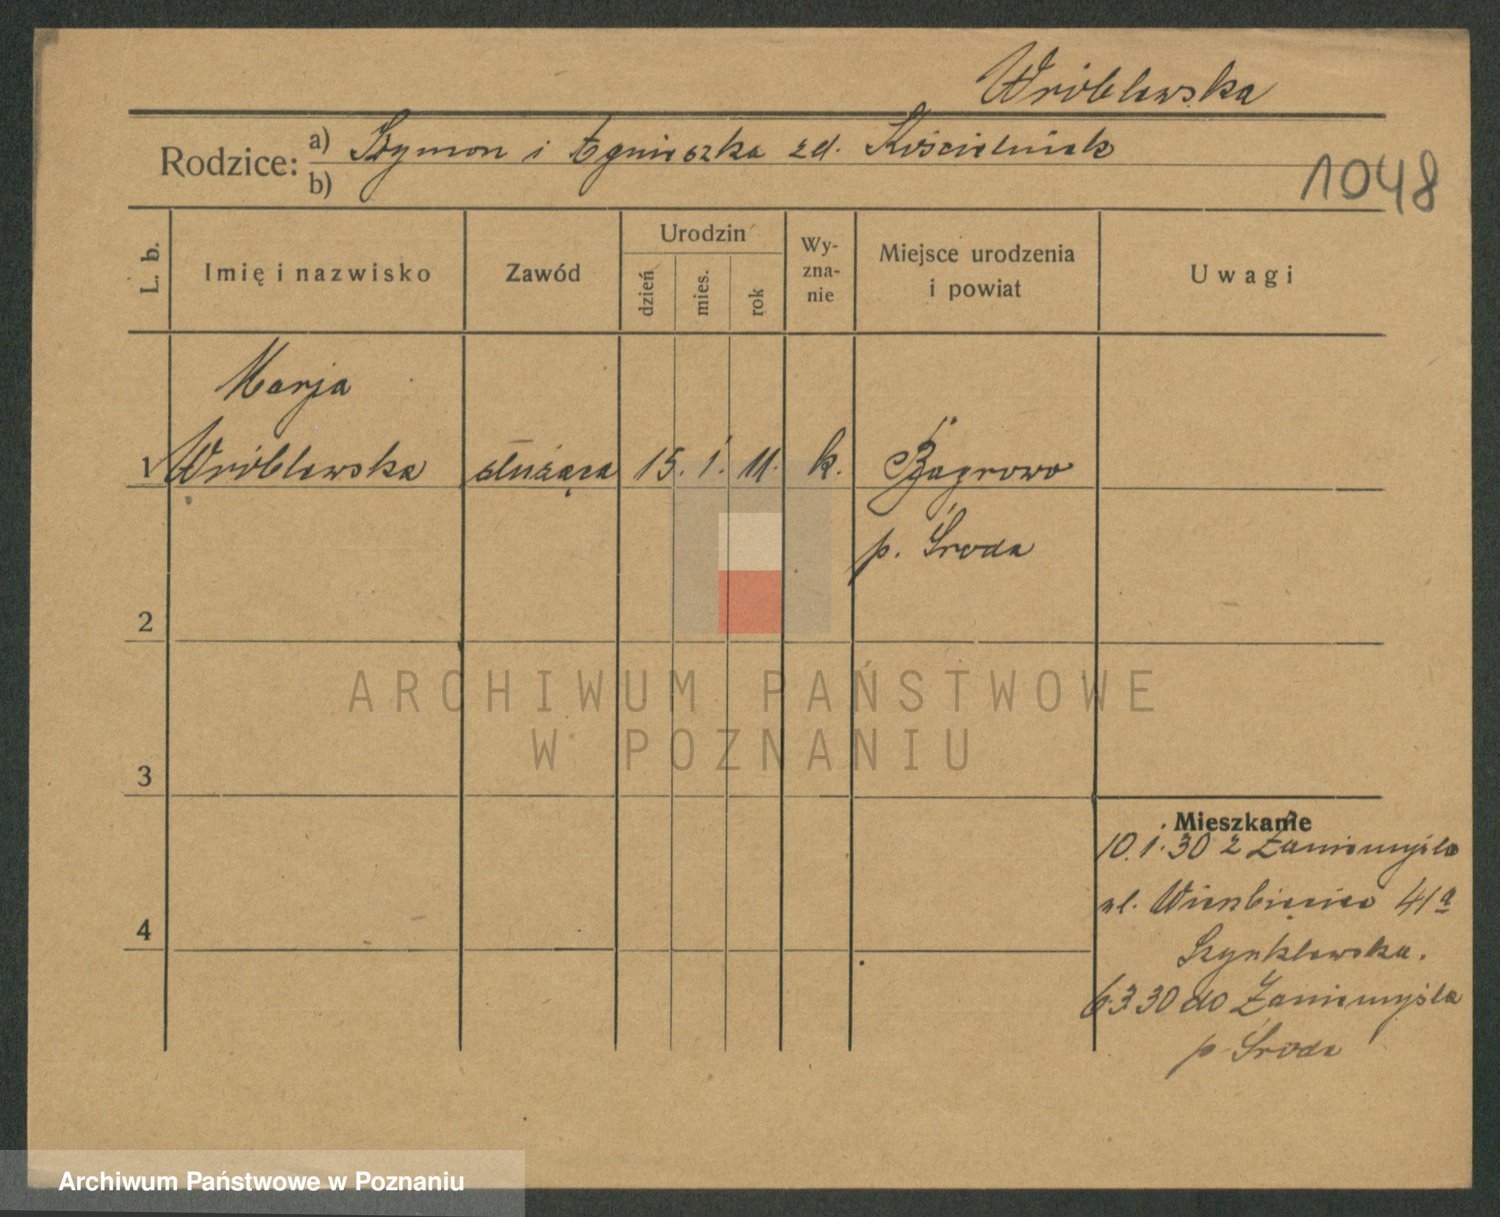 Wróblewska
Rodzice: a) Szymon i Agnieszka zd. Kościelniak
b)
1048
L. b.
Imię i nazwisko
Zawód
Urodzin
dzień
mies.
rok
Wy-
zna-
nie
Miejsce urodzenia
i powiat
Uwagi
Marja
1 Wróblewska służąca 15. 1. 11. k. Bagrowo
p. Środa
2
3
4
ARCHIWUM PAŃSTWOWE
W POZNANIU
Mieszkanie
10.1.30 z Zaniemyśla
ul. Wierzbięcice 41a
6.3.30 do Zaniemyśla
p. Środa
Archiwum Państwowe w Poznaniu